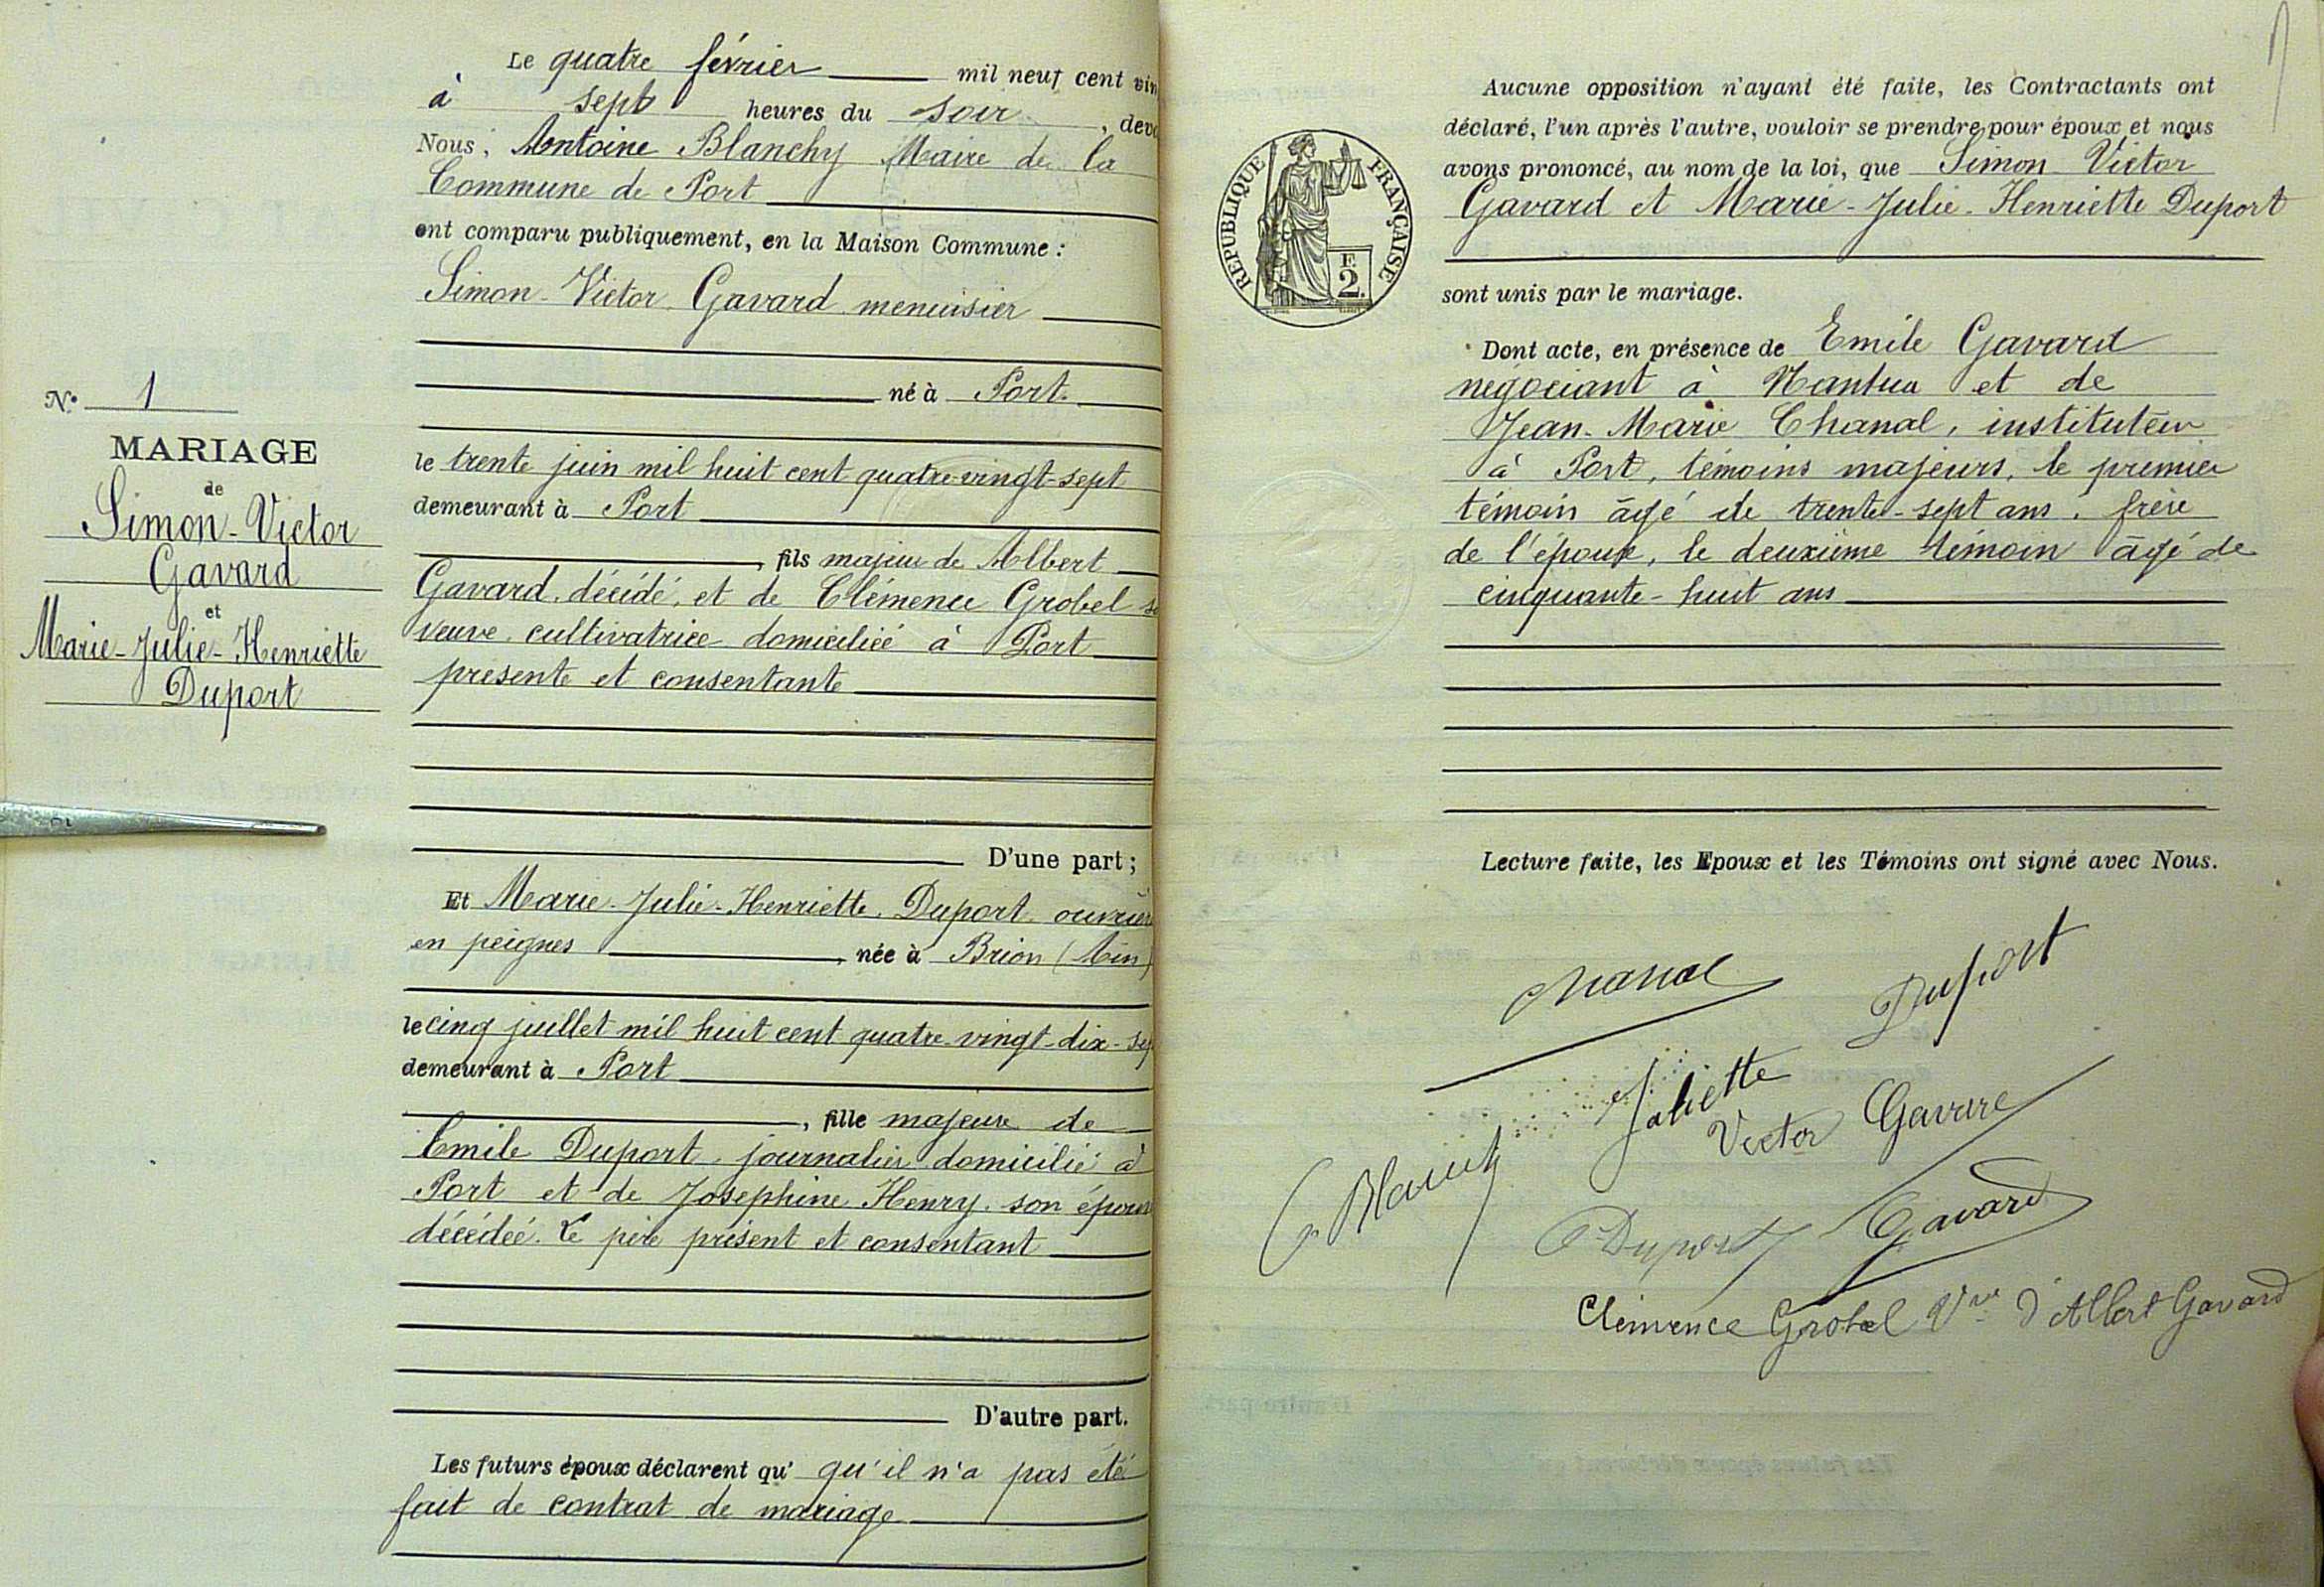 Le quatre février mil neuf cent vin
à sept heures du soir, deva
Nous, Antoine Blanchy Maire de la
Commune de Port
ont comparu publiquement, en la Maison Commune :
Simon-Victor Gavard menuisier
né à Port.
le trente juin mil huit cent quatre-vingt-sept
demeurant à Port
, fils majeur de Albert
Gavard, décédé, et de Clémence Grobel s
veuve, cultivatrice domiciliée à Port
présente et consentante
D'une part ;
N° 1
MARIAGE
de
Simon-Victor
Gavard
et
Marie-Julie-Henriette
Duport
Et Marie-Julie-Henriette Duport ouvrièr
en peignes, née à Brion (Ain)
le cinq juillet mil huit cent quatre-vingt-dix-sep
demeurant à Port
, fille majeure de
Emile Duport, journalier domicilié à
Port et de Josephine Henry, son épous
décédée. Le père présent et consentant
D'autre part.
Les futurs époux déclarent qu' qu'il n'a pas été
fait de contrat de mariage
RÉPUBLIQUE FRANÇAISE
F.
2.
Aucune opposition n'ayant été faite, les Contractants ont
déclaré, l'un après l'autre, vouloir se prendre pour époux et nous
avons prononcé, au nom de la loi, que Simon Victor
Gavard et Marie-Julie-Henriette Duport
sont unis par le mariage.
Dont acte, en présence de Emile Gavard
négociant à Nantua et de
Jean-Marie Chanal, instituteur
à Port, témoins majeurs, le premier
témoin âgé de trente-sept ans, frère
de l'époux, le deuxième témoin âgé de
cinquante-huit ans
Lecture faite, les Epoux et les Témoins ont signé avec Nous.
Chanal
Duport
Joliette
Victor Gavard
Blanchy
Duport
Gavard
Clémence Grobel Vve d'Albert Gavard